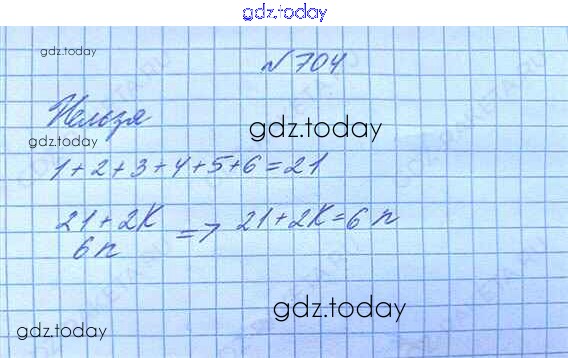 gdz.today
gdz.today
№704
Нельзя
gdz.today
gdz.today
1+2+3+4+5+6=21
21+2K
6n
=7 21+2K=6n
gdz.today
gdz.today